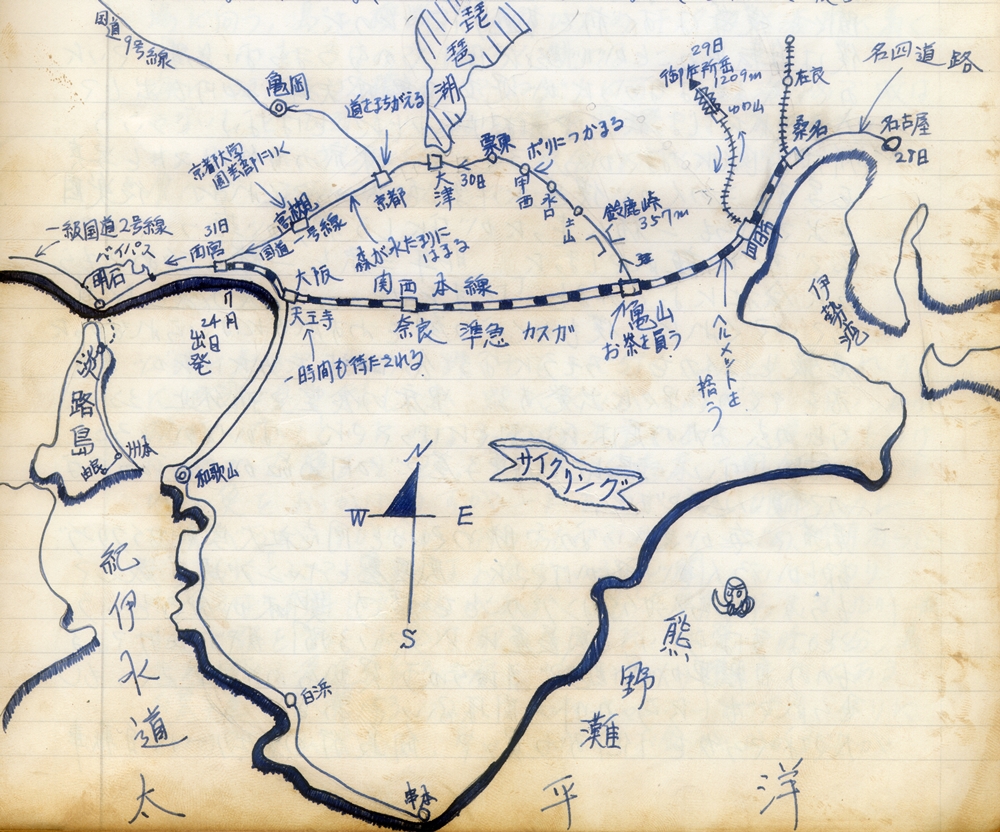 国道9号線
亀岡
琵琶湖
道をまちがえる
29日
御在所岳
1209m
名四道路
名古屋
27日
桑名
栗東
ポリにつかまる
30日
甲西
水口
土山
鈴鹿峠
357m
大津
京都
高槻
国道一号線
森が水たまりに
はまる
一級国道2号線
バイパス
明石
31日
西宮
大阪
天王寺
一時間も待たされる
7月
24日
出発
関西本線
奈良
準急 カスガ
亀山
お茶を買う
四日市
ヘルメットを
拾う
伊勢湾
淡路島
洲本
和歌山
サイクリング
N
W
E
S
紀伊水道
白浜
串本
熊野灘
太平洋